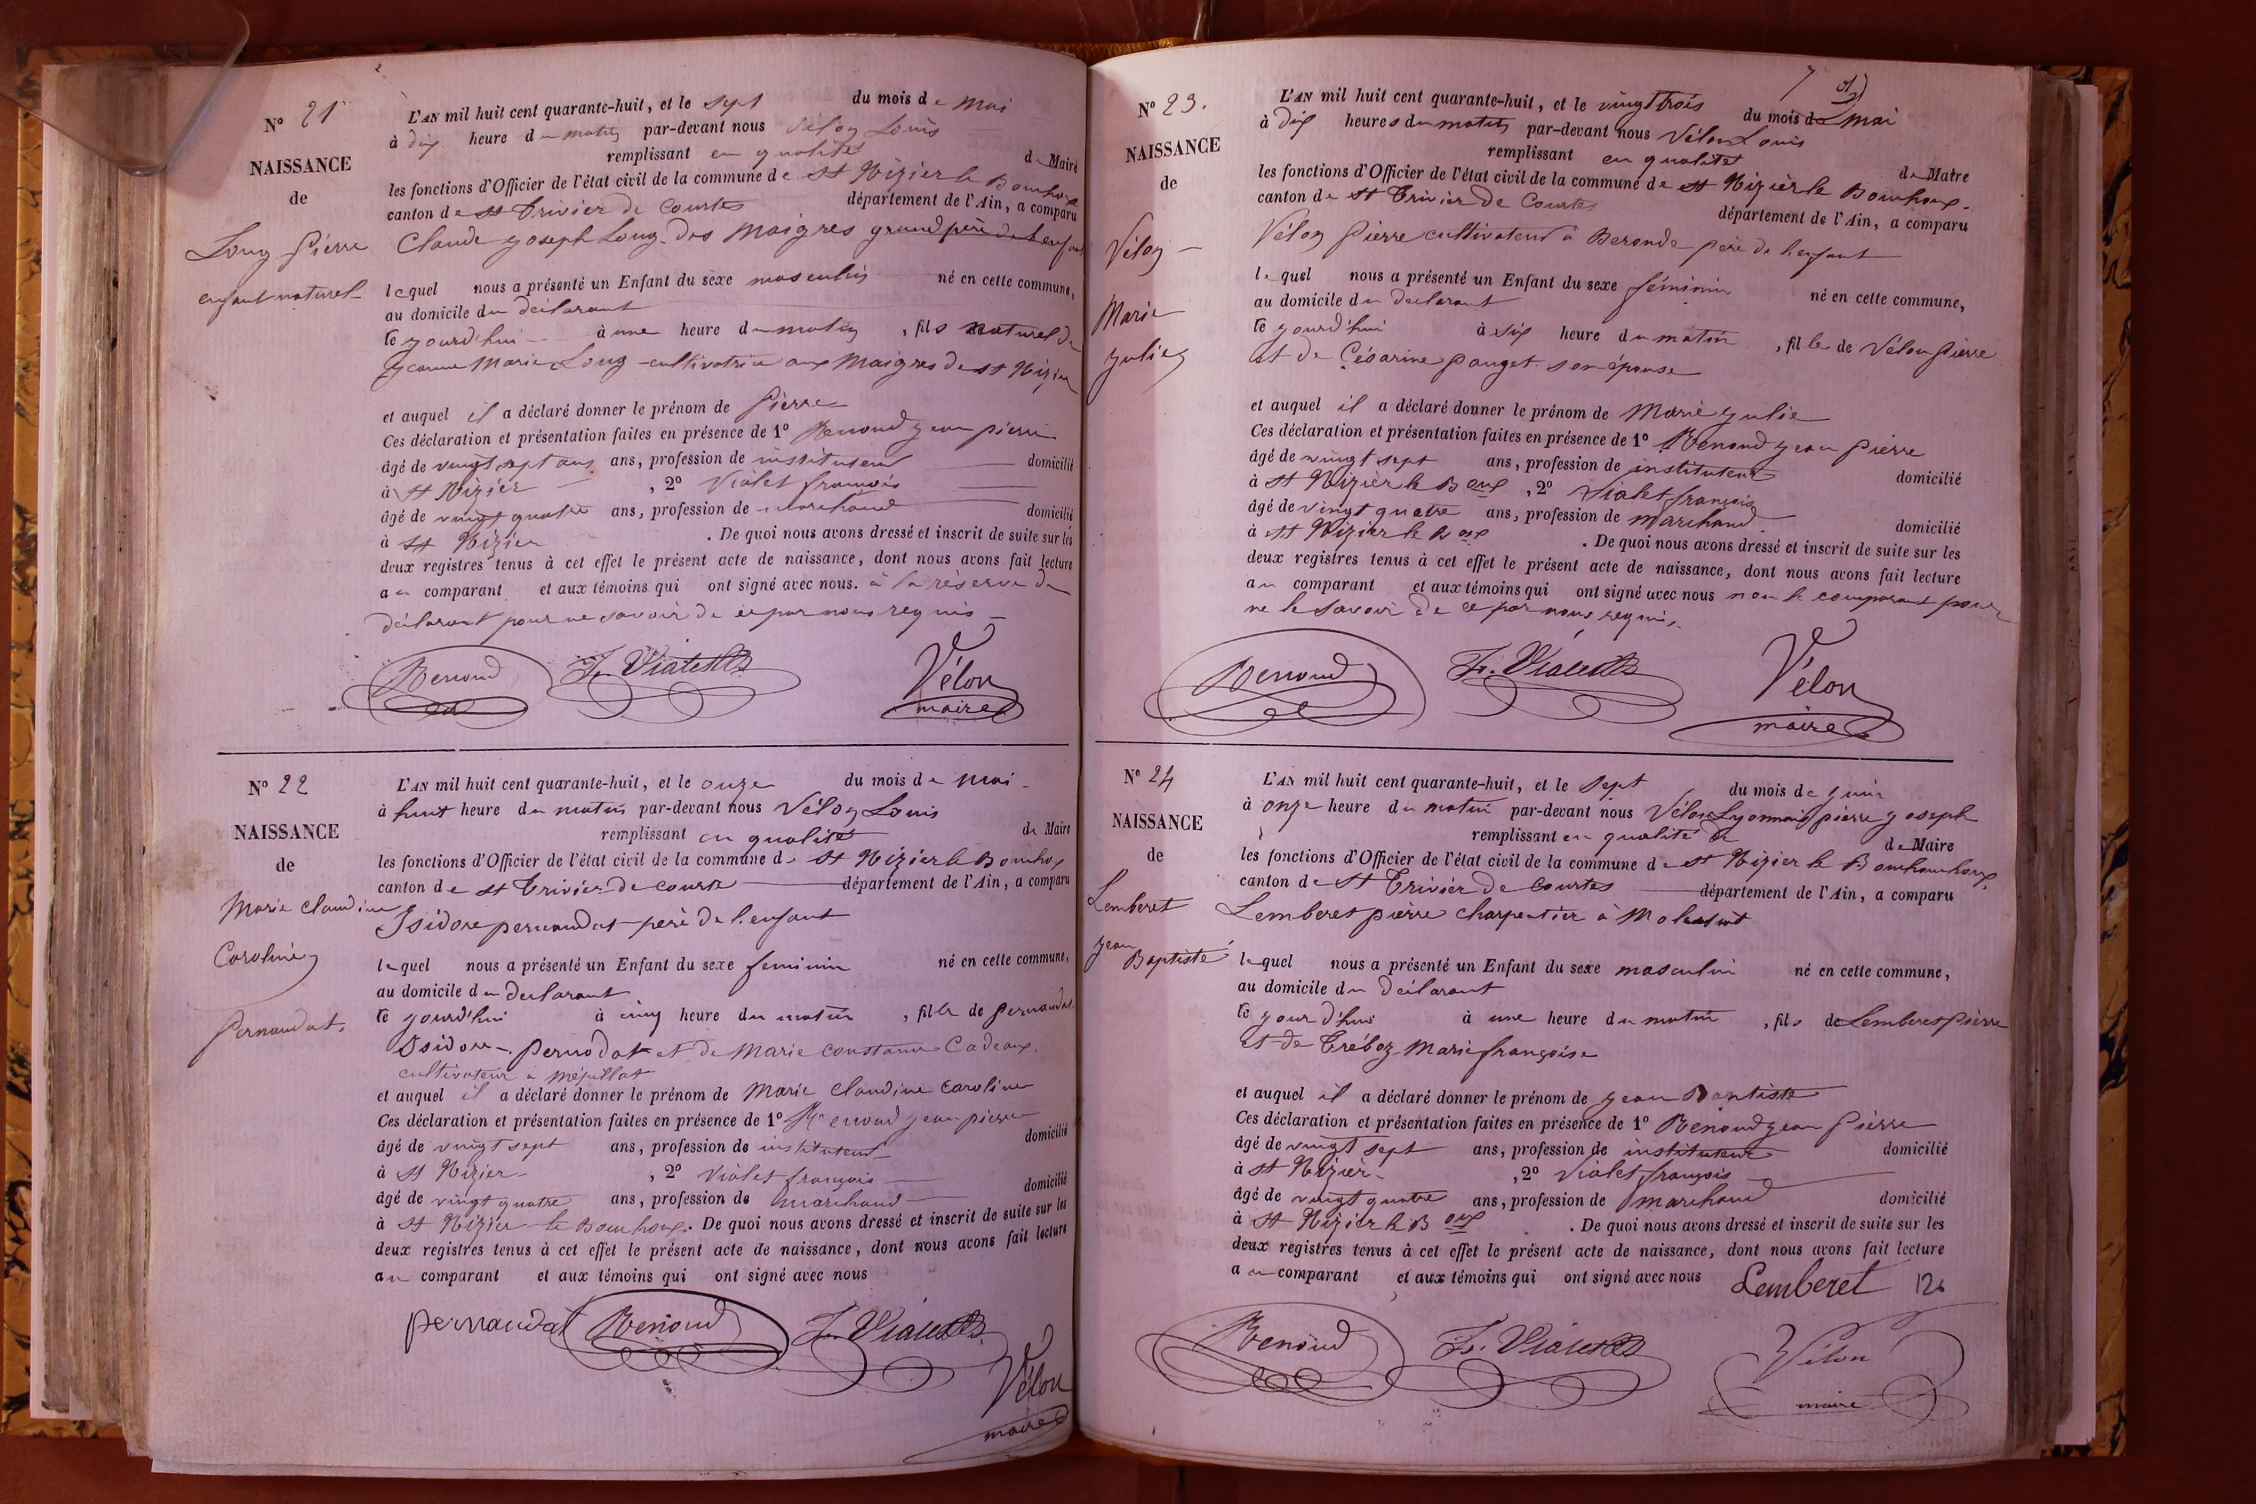 N° 21
NAISSANCE
de
Long Pierre
enfant naturel
L'AN mil huit cent quarante-huit, et le sept du mois de mai
à dix heure du matin par-devant nous Vélon Louis
remplissant en qualité de Maire
les fonctions d'Officier de l'état civil de la commune de St Nizier le Bouchoux
canton de St Trivier de Courtes département de l'Ain, a comparu
Claude Joseph Long des Maigres grand père de l'enfant
lequel nous a présenté un Enfant du sexe masculin né en cette commune,
au domicile du déclarant
ce jourd'hui à une heure du matin, fils naturel de
Jeanne Marie Long cultivatrice aux Maigres de St Nizier
et auquel il a déclaré donner le prénom de Pierre
Ces déclaration et présentation faites en présence de 1° Renoud Jean pierre
âgé de vingt sept ans ans, profession de instituteur domicilié
à St Nizier, 2° Vialet françois
âgé de vingt quatre ans, profession de marchand domicilié
à St Nizier. De quoi nous avons dressé et inscrit de suite sur les
deux registres tenus à cet effet le présent acte de naissance, dont nous avons fait lecture
au comparant et aux témoins qui ont signé avec nous. à la réserve du
déclarant pour ne savoir de ce par nous requis
Renoud F. Vialet Vélon
maire
N° 22
NAISSANCE
de
Marie Claudine
Caroline
Pernaudat.
L'AN mil huit cent quarante-huit, et le onze du mois de mai
à huit heure du matin par-devant nous Vélon Louis
remplissant en qualité de Maire
les fonctions d'Officier de l'état civil de la commune de St Nizier le Bouchoux
canton de St Trivier de courte département de l'Ain, a comparu
Isidore pernaudat père de l'enfant
lequel nous a présenté un Enfant du sexe feminin né en cette commune,
au domicile du declarant
ce jourd'hui à cinq heure du matin, fille de pernaudat
Isidore pernodat et de Marie constance Cadeaux.
cultivateur a
et auquel il a déclaré donner le prénom de Marie Claudine Caroline
Ces déclaration et présentation faites en présence de 1° Renoud Jean pierre
âgé de vingt sept ans, profession de instituteur domicilié
à St Nizier, 2° Vialet françois
âgé de vingt quatre ans, profession de marchand domicilié
à St Nizier le Bouchoux. De quoi nous avons dressé et inscrit de suite sur les
deux registres tenus à cet effet le présent acte de naissance, dont nous avons fait lecture
au comparant et aux témoins qui ont signé avec nous
pernaudat Renoud F. Vialet
Vélon
maire
7
N° 23.
NAISSANCE
de
Vélon
Marie
Julie
L'AN mil huit cent quarante-huit, et le vingt trois du mois de mai
à dix heures du matin par-devant nous Vélon Louis
remplissant en qualité de Maire
les fonctions d'Officier de l'état civil de la commune de St Nizier le Bouchoux.
canton de St Trivier de Courtes département de l'Ain, a comparu
Vélon Pierre cultivateur à Beronde père de l'enfant
lequel nous a présenté un Enfant du sexe féminin né en cette commune,
au domicile du declarant
ce jourd'hui à six heure du matin, fille de Vélon Pierre
et de Césarine pauget son épouse
et auquel il a déclaré donner le prénom de Marie Julie
Ces déclaration et présentation faites en présence de 1° Renoud Jean Pierre
âgé de vingt sept ans, profession de instituteur domicilié
à St Nizier le Boux, 2° Vialet françois
âgé de vingt quatre ans, profession de marchand domicilié
à St Nizier le Boux. De quoi nous avons dressé et inscrit de suite sur les
deux registres tenus à cet effet le présent acte de naissance, dont nous avons fait lecture
au comparant et aux témoins qui ont signé avec nous non le comparant pour
ne le savoir de ce par nous requis.
Renoud F. Vialet Vélon
maire
N° 24
NAISSANCE
de
Lemberet
Jean
Baptiste
L'AN mil huit cent quarante-huit, et le sept du mois de juin
à onze heure du matin par-devant nous Vélon Lyonnais pierre Joseph
remplissant en qualité de de Maire
les fonctions d'Officier de l'état civil de la commune de St Nizier le
canton de St Trivier de Courtes département de l'Ain, a comparu
Lemberet pierre charpentier à
lequel nous a présenté un Enfant du sexe masculin né en cette commune,
au domicile du déclarant
ce jour d'hui à une heure du matin, fils de Lemberet Pierre
et de Tréboz Marie françoise
et auquel il a déclaré donner le prénom de Jean Baptiste
Ces déclaration et présentation faites en présence de 1° Renoud Jean Pierre
âgé de vingt sept ans, profession de instituteur domicilié
à St Nizier, 2° Vialet françois
âgé de vingt quatre ans, profession de marchand domicilié
à St Nizier le Boux. De quoi nous avons dressé et inscrit de suite sur les
deux registres tenus à cet effet le présent acte de naissance, dont nous avons fait lecture
au comparant et aux témoins qui ont signé avec nous Lemberet
Renoud F. Vialet Vélon
maire